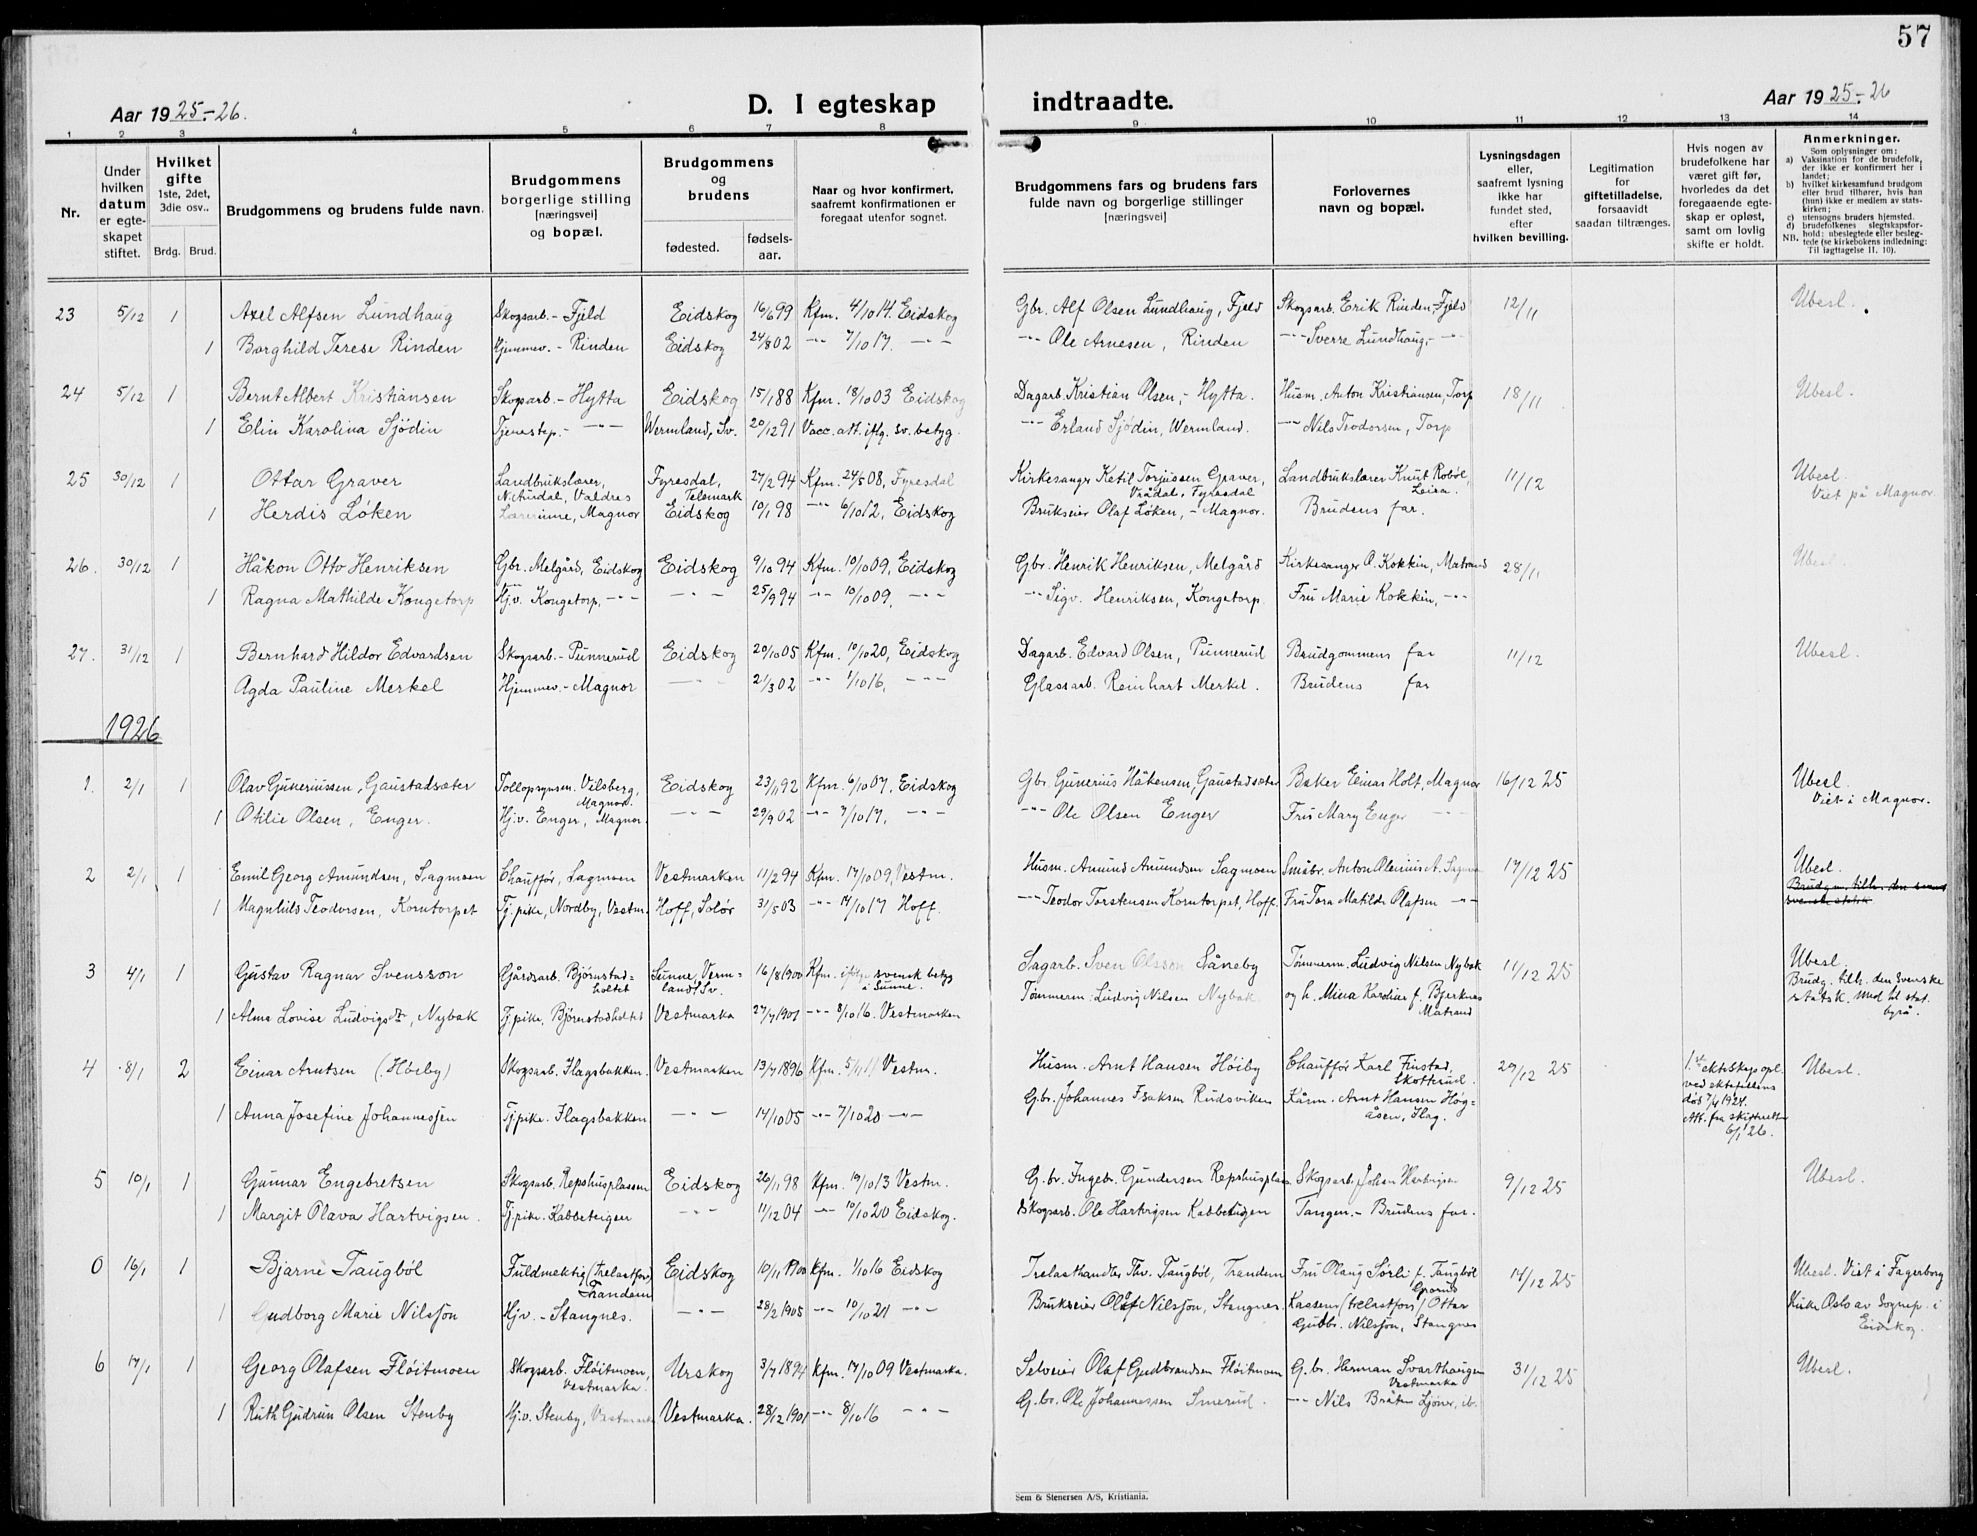 57
Aar 1925-26.
D. I egteskap indtraadte.
Aar 1925-26
1 2 3 4 5 6 7 8 9 10 11 12 13 14
Nr.
Under hvilken datum er egteskapet stiftet.
Hvilket gifte 1ste, 2det, 3die osv..
Brdg. Brud.
Brudgommens og brudens fulde navn.
Brudgommens borgerlige stilling [næringsvei] og bopæl.
Brudgommens og brudens
fødested.
fødsels-aar.
Naar og hvor konfirmert, saafremt konfirmationen er foregaat utenfor sognet.
Brudgommens fars og brudens fars fulde navn og borgerlige stillinger [næringsvei]
Forlovernes navn og bopæl.
Lysningsdagen eller, saafremt lysning ikke har fundet sted, efter hvilken bevilling.
Legitimation for giftetilladelse, forsaavidt saadan tiltrænges.
Hvis nogen av brudefolkene har været gift før, hvorledes da det foregaaende egteskap er opløst, samt om lovlig skifte er holdt.
Anmerkninger.
Som oplysninger om:
a) Vaksination for de brudefolk, der ikke er konfirmert her i landet;
b) hvilket kirkesamfund brudgom eller brud tilhører, hvis han (hun) ikke er medlem av statskirken;
c) utensogns bruders hjemsted.
d) brudefolkenes slegtskapsforhold: ubeslegtede eller beslegtede (se kirkebokens indledning: Til iagttagelse II. 10).
NB.
23 5/12 1 Axel Alfsen Lundhaug Skogsarb. - Fjeld Eidskog 16/6 99 Kfm. 4/10 14. Eidskog Gbr. Alf Olsen Lundhaug, Fjeld Skogsarb. Erik Rinden, Fjeld 12/11 Ubesl.
1 Borghild Terese Rinden Hjemmev. - Rinden Eidskog 24/8 02 -"- 7/10 17. -"- -"- Ole Arnesen, Rinden -"- Sverre Lundhaug, -"-
24 5/12 1 Bernt Albert Kristiansen Skogsarb. - Hytta Eidskog 15/1 88 Kfm. 18/10 03 Eidskog Dagarb. Kristian Olsen, - Hytta. Husm. Anton Kristiansen, Torp 18/11 Ubesl.
1 Elin Karolina Sjödin Tjenestep. - -"- Wermland, Sv. 20/12 91 Vacc. att. iflg. sv. betyg. -"- Erland Sjödin, Wermland. -"- Nils Teodorsen, Torp
25 30/12 1 Ottar Graver Landbrukslærer, N. Aurdal, Valdres Fyresdal, Telemark 27/2 94 Kfm. 24/5 08, Fyresdal Kirkesanger Ketil Torjussen Graver, Vrådal, Fyresdal Landbrukslærer Knut Robøl, Leira. 11/12 Ubesl. Viet på Magnor
1 Herdis Løken Lærerinne, Magnor Eidskog 10/1 98 -"- 6/10 12, Eidskog Brukseier Olaf Løken, - Magnor. Brudens far.
26. 30/12 1 Håkon Otto Henriksen Gbr. Melgård, Eidskog Eidskog 9/10 94 Kfm. 10/10 09, Eidskog Gbr. Henrik Henriksen, Melgård Kirkesanger O. Kokkin, Matrand 28/11 Ubesl.
1 Ragna Mathilde Kongetorp Hj.v. Kongetorp, -"- -"- 25/9 94 -"- 10/10 09, -"- -"- Sigv. Henriksen, Kongetorp. Fru Marie Kokkin, -"-
27. 31/12 1 Bernhard Hildor Edvardsen Skogsarb. - Punnerud Eidskog 20/10 05 Kfm. 10/10 20, Eidskog Dagarb. Edvard Olsen, Punnerud Brudgommens far 11/12 Ubesl.
Agda Pauline Merkel Hjemmev. - Magnor -"- 21/3 02 -"- 1/10 16, -"- Glassarb. Reinhart Merkel. Brudens far
1926
1. 2/1 1 Olav Guneriussen, Gaustadsæter Tollopsynsm. Vilsberg, Magnor. Eidskog 23/1 92 Kfm. 6/10 07, Eidskog Gbr Gunerius Håkensen, Gaustadsæter Baker Einar Holt, Magnor 16/12 25 Ubesl. Viet i Magnor.
1 Otilie Olsen, Enger. Hj.v. Enger, Magnor. -"- 29/9 02 -"- 7/10 17. -"- -"- Ole Olsen Enger Fru Mary Enger -"-
2 2/1 1 Emil Georg Amundsen, Sagmoen Chauffør, Sagmoen Vestmarken 11/2 94 Kfm. 17/10 09, Vestm. Husm. Amund Amundsen Sagmoen Småbr. Anton Olenius A. Sagmo 17/12 25 Ubesl.
1 Magnhild Teodorsen, Korntorpet Tj. pike, Nordby, Vestm. Hoff, Solør 31/5 03 -"- 14/10 17 Hoff. -"- Teodor Torstensen Korntorpet, Hoff. Fru Tora Matilde Olafsen -"-
3 4/1 1 Gustav Ragnar Svensson Gårdsarb. Bjørnstadholtet Sunne, Vermland, Sv. 16/8 1900 Kfm. iflg. svensk betyg i Sunne. Sagarb. Sven Olsson Såneby Tømmerm. Ludvig Nilsen Nybak 11/12 25 Ubesl. Brudg. tilh. den svenske statsk. Med til stat. byrå.
1 Alma Lovise Ludvigsdr, Nybak Tj. pike. Bjørnstadholtet Vestmarka 27/7 1901 -"- 8/10 16. Vestmarken Tømmerm. Ludvig Nilsen Nybak og h. Mina Kardine f. Bjerknes Matrand
4 8/1 2 Einar Arntsen (Høiby) Skogsarb. Flagsbakken. Vestmarken 13/7 1896 Kfm. 5/11 11 Vestm. Husm. Arnt Hansen Høiby Chauffør Karl Finstad, Skotterud 29/12 25 1ste ektskap opl. ved ektefellens død 7/4 1924. Att. fra skifteretten 6/1 26. Ubesl.
1 Anna Josefine Johannessen Tj. pike. Flagsbakken -"- 14/10 05 -"- 7/10 20 -"- G.br. Johannes Isaksen Rudsviken Kårm. Arnt Hansen Høgåsen, Flag.
5 10/1 1 Gunnar Engebretsen Skogsarb. Repshusplassen Eidskog 26/1 98 Kfm. 19/10 13 Vestm. G.br. Ingebr. Gundersen Repshusplass Skogsarb. Johan 9/12 25 Ubesl.
1 Margit Olava Hartvigsen. Tj. pike. Kabbeteigen -"- 11/12 04 -"- 10/10 20 Eidskog. Skogsarb. Ole Hartvigsen Kabbeteigen Tangen. - Brudens far.
0 16/1 1 Bjarne Taugbøl Fuldmektig (trelastforr.) Trandem Eidskog 10/11 1900 Kfm. 1/10 16 Eidskog Trelasthandler Thv. Taugbøl, Trandem Fru Olaug Sørli f. Taugbøl Grorud 14/12 25 Ubesl. Viet i Fagerborg Kirke Oslo av Sognep. i Eidskog.
1 Gudborg Marie Nilssøn Hjv. - Stangnes. -"- 28/2 1905 -"- 10/10 21 -"- Brukseier Olaf Nilssøn, Stangnes. Kasserer (trelastforr) Ottar Gudbr. Nilssøn, Stangnes
6 17/1 1 Georg Olafsen Fløitmoen Skogsarb. Fløitmoen, Vestmarka. Urskog 3/7 1894 Kfm. 17/10 09 Vestmarka. Selveier Olaf Gudbrandsen Fløitmoen G.br. Herman Svarthaugen Vestmarka 31/12 25 Ubesl.
1 Ruth Gudrun Olsen Stenby Hj.v. Stenby, Vestmarka Vestmarka. 28/12 1901 -"- 8/10 16 -"- G.br. Ole Johannessen Smerud. -"- Nils Bråten
Sem & Stenersen A/S, Kristiania.